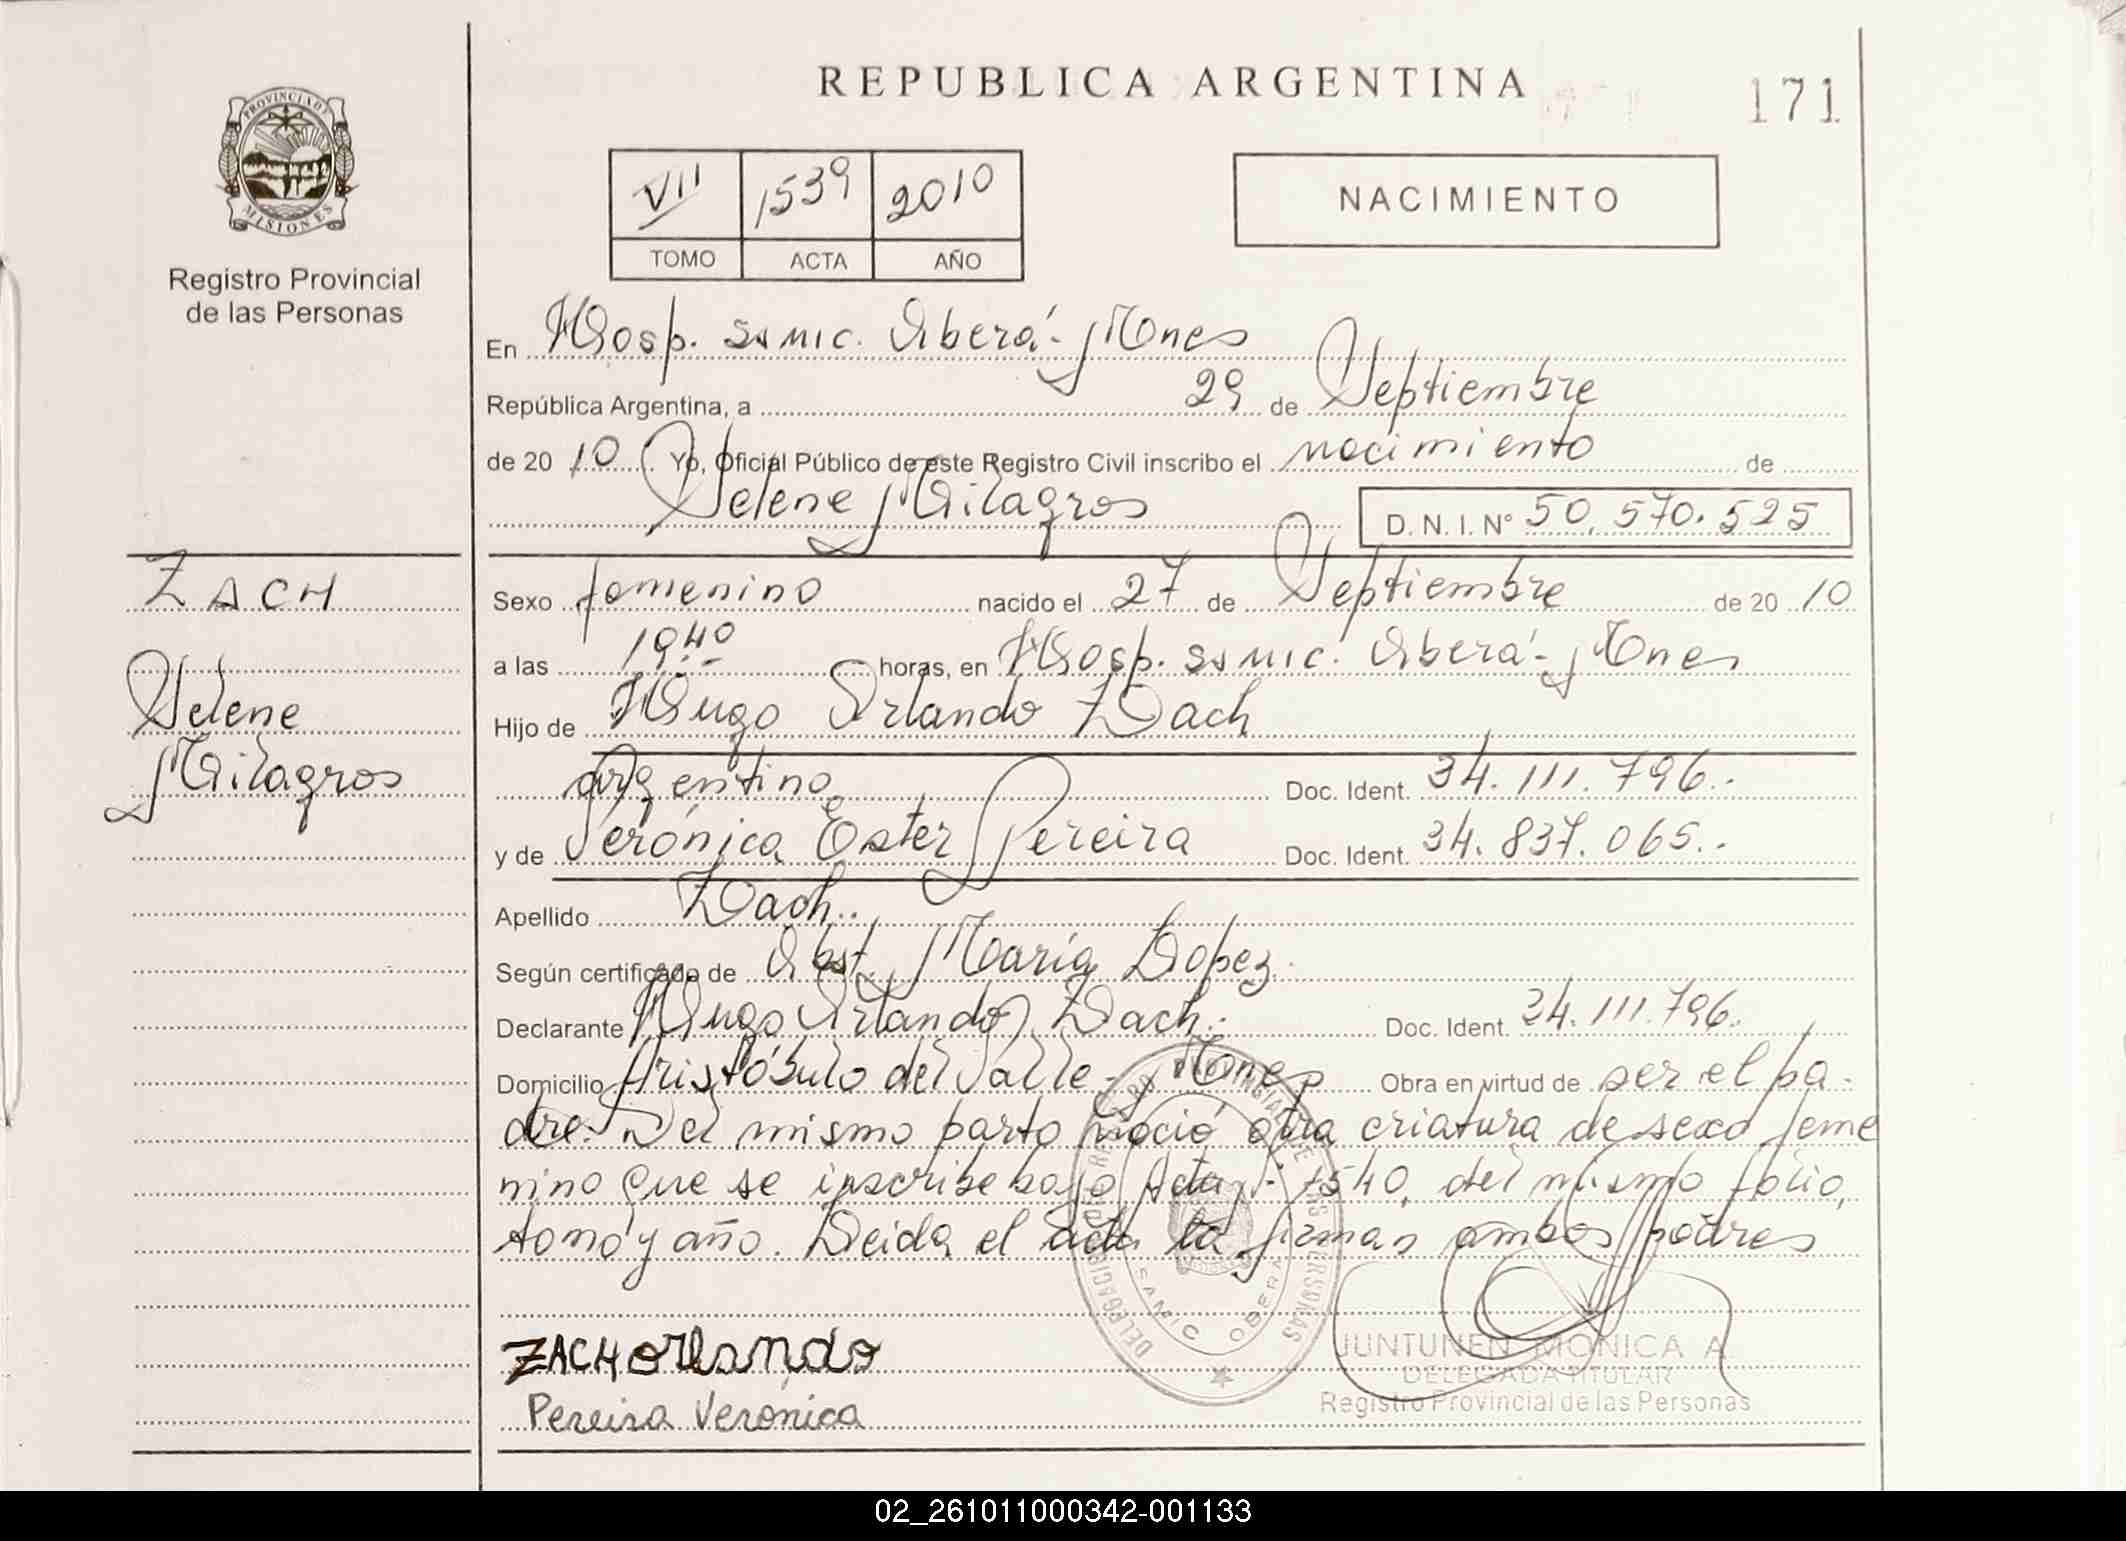 REPUBLICA ARGENTINA
171
PROVINCIA DE
MISIONES
Registro Provincial
de las Personas
VII 1539 2010
TOMO ACTA AÑO
NACIMIENTO
En Hosp. Samic. Oberá - Mnes
República Argentina, a 29 de Septiembre
de 2010 Yo, Oficial Público de este Registro Civil inscribo el nacimiento de
Selene Milagros D.N.I. Nº 50.570.525
ZACH
Selene
Milagros
Sexo femenino nacido el 27 de Septiembre de 2010
a las 19:40 horas, en Hosp. Samic. Oberá - Mnes
Hijo de Hugo Orlando Zach
argentino Doc. Ident. 34.111.796.
y de Verónica Ester Pereira Doc. Ident. 34.837.065.
Apellido Zach.
Según certificado de Obst. María Lopez.
Declarante Hugo Orlando Zach. Doc. Ident. 34.111.796.
Domicilio Aristóbulo del Valle - Mnes Obra en virtud de ser el pa-
dre. Del mismo parto nació otra criatura de sexo feme
nino que se inscribe bajo Acta: 1540, del mismo folio,
tomo y año. Leida el acta la firman ambos padres
DELEGACION REGISTRO PROVINCIAL DE LAS PERSONAS
SAMIC OBERA
ZACH Orlando
Pereira Verónica
JUNTUNEN MONICA A.
DELEGADA TITULAR
Registro Provincial de las Personas
02_261011000342-001133